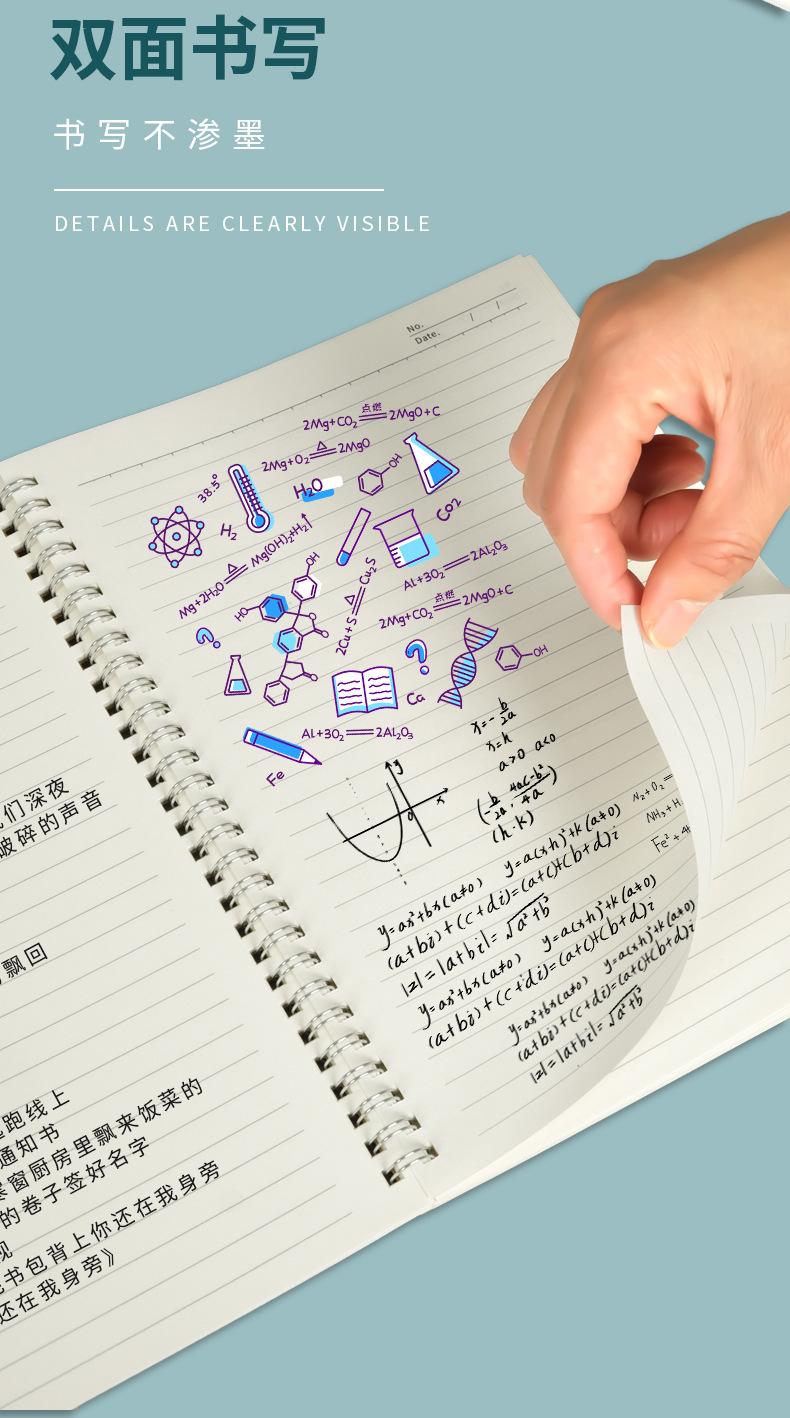 双面书写
书写不渗墨
DETAILS ARE CLEARLY VISIBLE
No.
Date. / /
2Mg+CO₂ 点燃 2MgO+C
2Mg+O₂ △ 2MgO
38.5°
H₂O
OH
H₂
Co2
Mg+2H₂O △ Mg(OH)₂+H₂↑
OH
HO
O
O
2Cu+S △ Cu₂S
Al+3O₂ 2Al₂O₃
2Mg+CO₂ 点燃 2MgO+C
OH
Ca
Al+3O₂ 2Al₂O₃
Fe
x=-b/2a
x=h
a>0 a<0
(-b/2a, 4ac-b²/4a)
(h.k)
y
x
0
N₂+O₂=
NH₃+H
Fe²+4H
y=ax²+bx(a≠0) y=a(x+h)²+k(a≠0)
(a+bi)+(c+di)=(a+c)+(b+d)i
|z|=|a+bi|=√a²+b²
y=ax²+bx(a≠0) y=a(x+h)²+k(a≠0)
(a+bi)+(c+di)=(a+c)+(b+d)i
y=ax²+bx(a≠0) y=a(x+h)²+k(a≠0)
(a+bi)+(c+di)=(a+c)+(b+d)i
|z|=|a+bi|=√a²+b²
们深夜
破碎的声音
飘回
跑线上
通知书
寒窗厨房里飘来饭菜的
的卷子签好名字
现
书包背上你还在我身旁
还在我身旁》